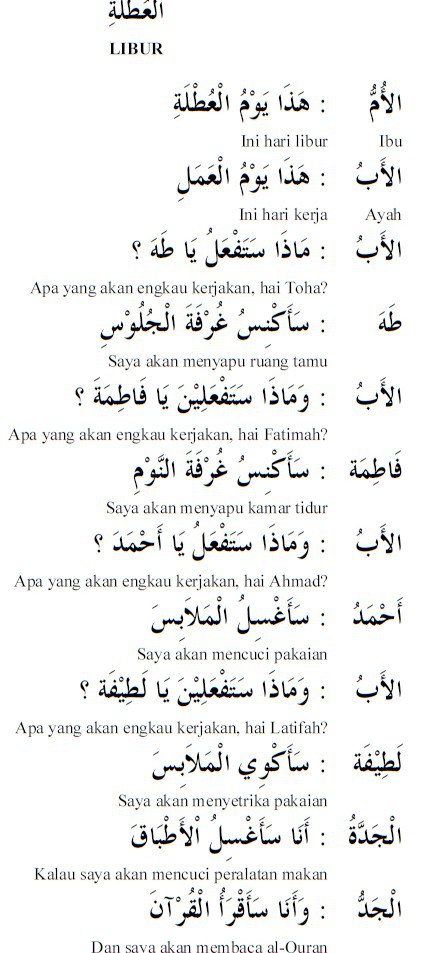 العُطْلَةِ
LIBUR
الأُمُّ : هَذَا يَوْمُ الْعُطْلَةِ
Ibu Ini hari libur
الأَبُ : هَذَا يَوْمُ الْعَمَلِ
Ayah Ini hari kerja
الأَبُ : مَاذَا سَتَفْعَلُ يَا طَهَ ؟
Apa yang akan engkau kerjakan, hai Toha?
طَهَ : سَأَكْنِسُ غُرْفَةَ الْجُلُوْسِ
Saya akan menyapu ruang tamu
الأَبُ : وَمَاذَا سَتَفْعَلِيْنَ يَا فَاطِمَةَ ؟
Apa yang akan engkau kerjakan, hai Fatimah?
فَاطِمَة : سَأَكْنِسُ غُرْفَةَ النَّوْمِ
Saya akan menyapu kamar tidur
الأَبُ : وَمَاذَا سَتَفْعَلُ يَا أَحْمَدَ ؟
Apa yang akan engkau kerjakan, hai Ahmad?
أَحْمَدُ : سَأَغْسِلُ الْمَلاَبِسَ
Saya akan mencuci pakaian
الأَبُ : وَمَاذَا سَتَفْعَلِيْنَ يَا لَطِيْفَة ؟
Apa yang akan engkau kerjakan, hai Latifah?
لَطِيْفَة : سَأَكْوِي الْمَلاَبِسَ
Saya akan menyetrika pakaian
الْجَدَّةُ : أَنَا سَأَغْسِلُ الْأَطْبَاقَ
Kalau saya akan mencuci peralatan makan
الْجَدُّ : وَأَنَا سَأَقْرَأُ الْقُرْآنَ
Dan saya akan membaca al-Quran